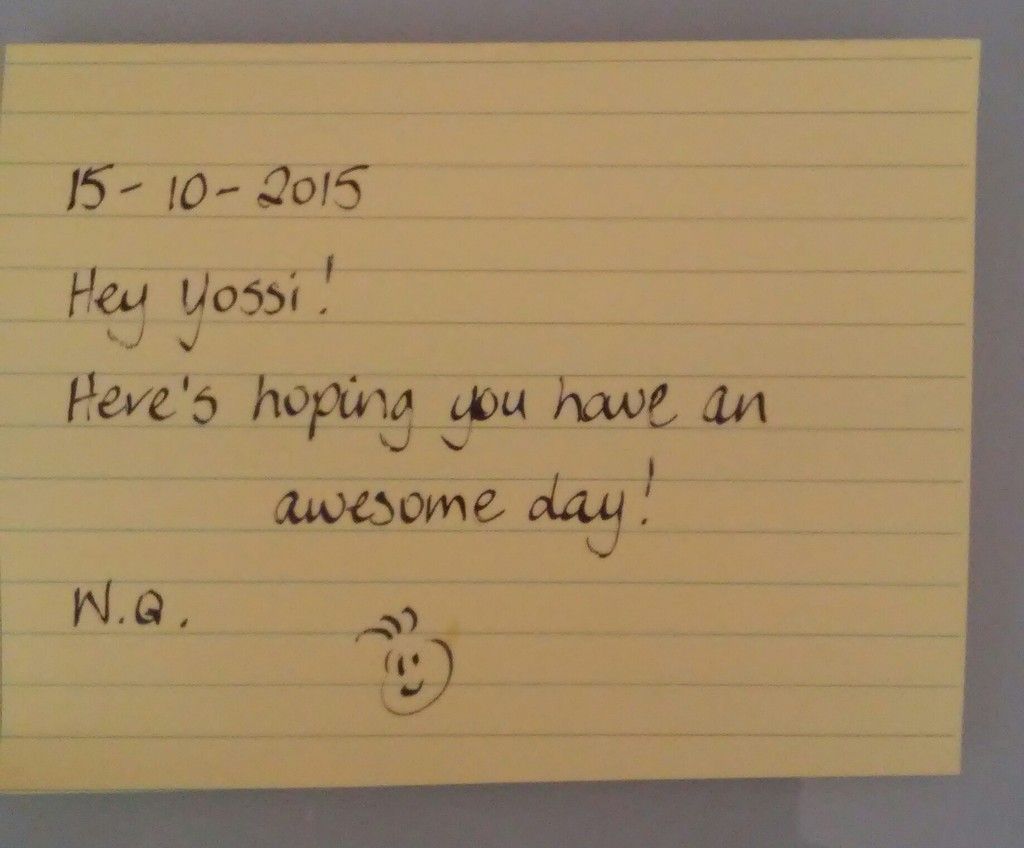 15-10-2015
Hey Yossi!
Here's hoping you have an
awesome day!
W.Q.